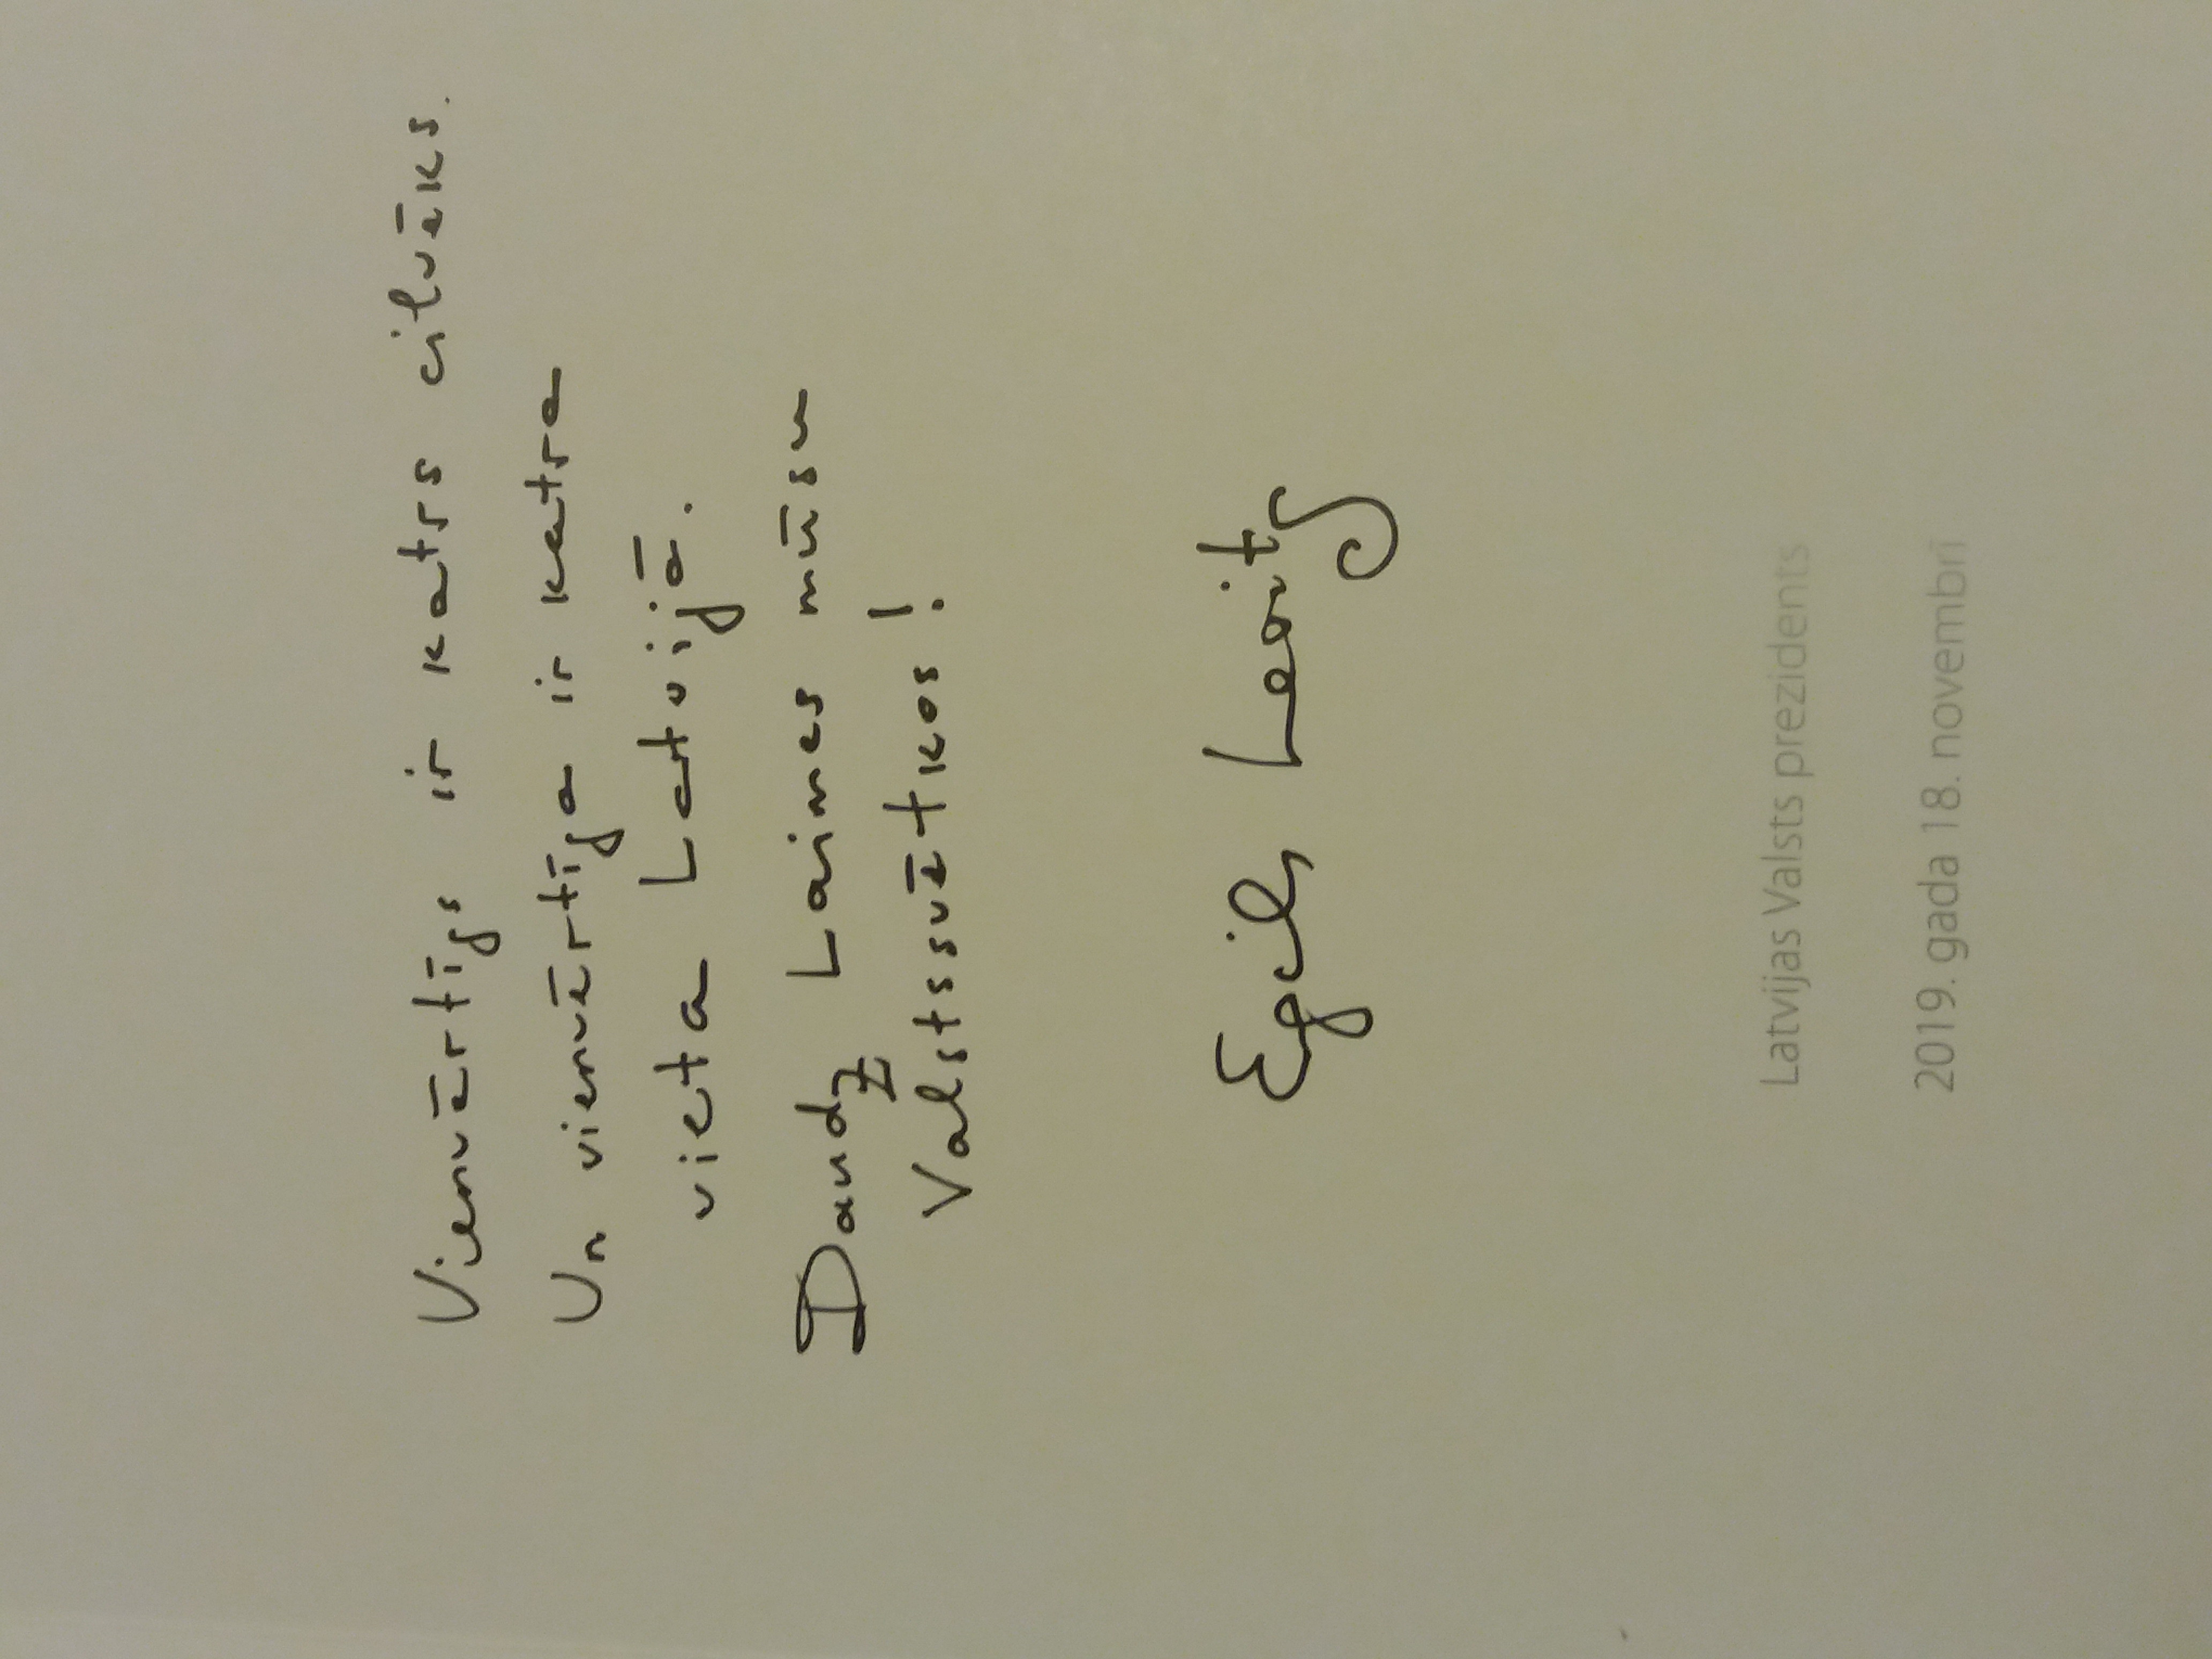 Vienvērtīgs ir katrs cilvēks.
Un vienvērtīga ir katra
vieta Latvijā.
Daudz Laimes mūsu
Valstssvētkos!
Egils Levits
Latvijas Valsts prezidents
2019. gada 18. novembrī